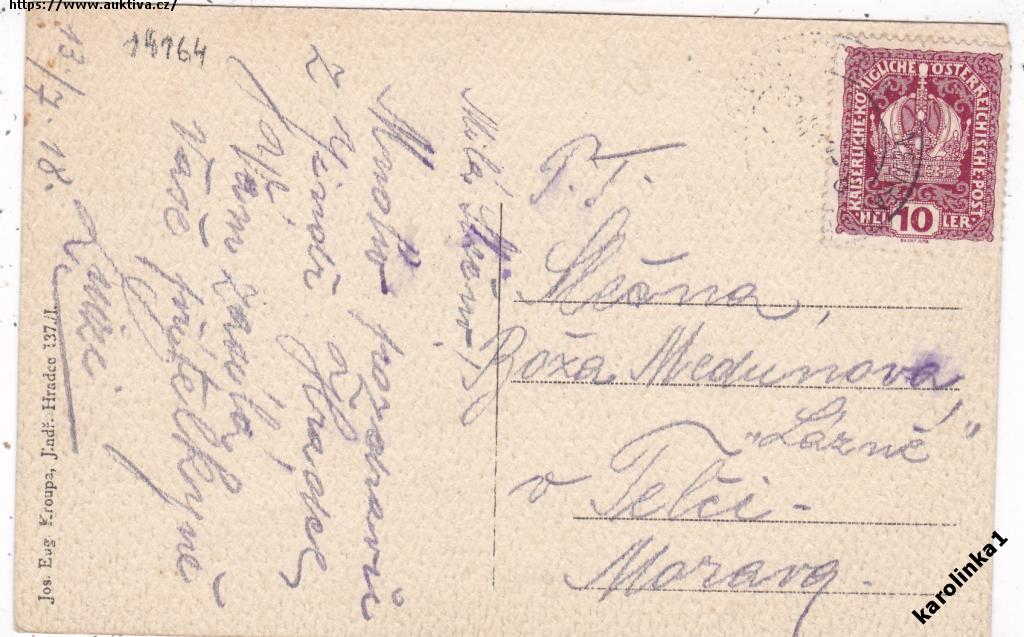 https://www.auktiva.cz/
14164
13./7. 18.
Milá
Mnoho pozdravů
z Jindř. Hradce
Vám
Vaše přítelkyně
Luisi.
Jos. Eug Kroupa, Jindř. Hradec 137/I.
KAISERLICHE KÖNIGLICHE ÖSTERREICHISCHE POST
HELLER
10
T. T.
Slečna,
Róža Medunová,
"Lázně"
v Telči -
Morava.
karolinka1